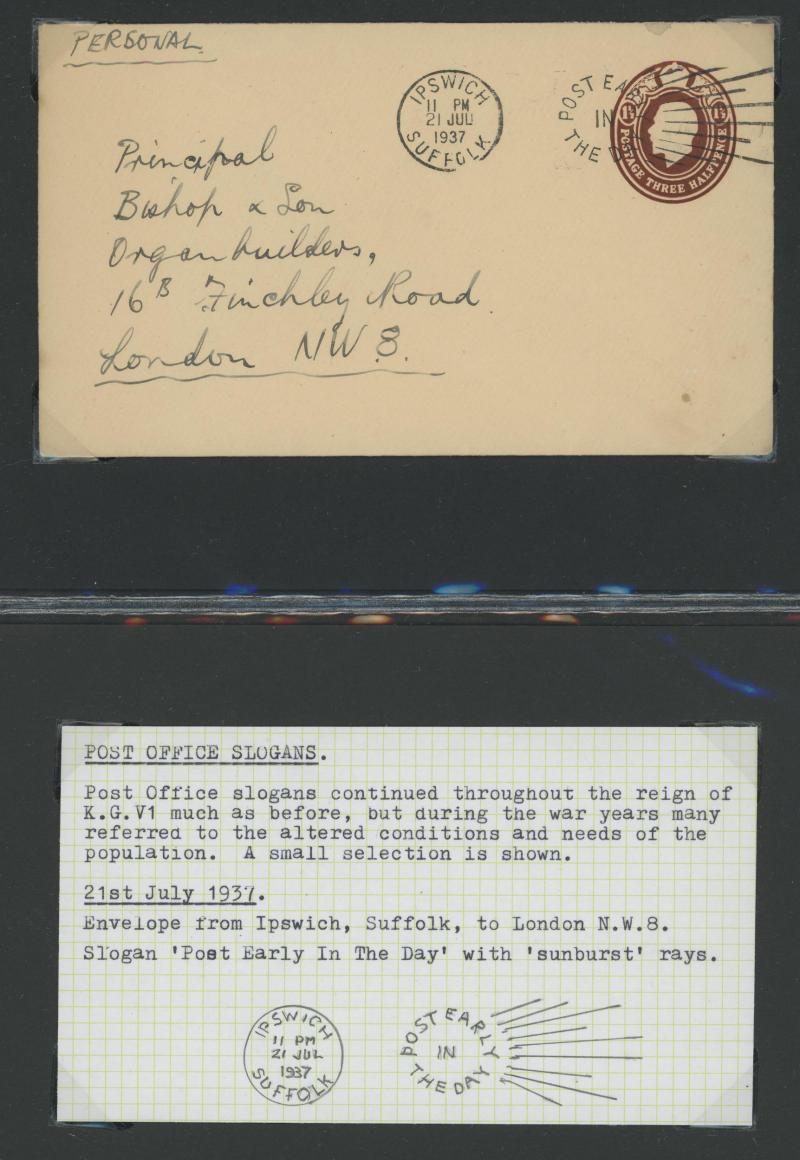 PERSONAL
IPSWICH
11 PM
21 JUL
1937
SUFFOLK
POST EA
IN
THE D
1½ 1½
POSTAGE THREE HALFPENCE
Principal
Bishop & Son
Organbuilders,
16B Finchley Road
London NW.8.
POST OFFICE SLOGANS.
Post Office slogans continued throughout the reign of
K.G.V1 much as before, but during the war years many
referred to the altered conditions and needs of the
population. A small selection is shown.
21st July 1937.
Envelope from Ipswich, Suffolk, to London N.W.8.
Slogan 'Post Early In The Day' with 'sunburst' rays.
IPSWICH
11 PM
21 JUL
1937
SUFFOLK
POST EARLY
IN
THE DAY